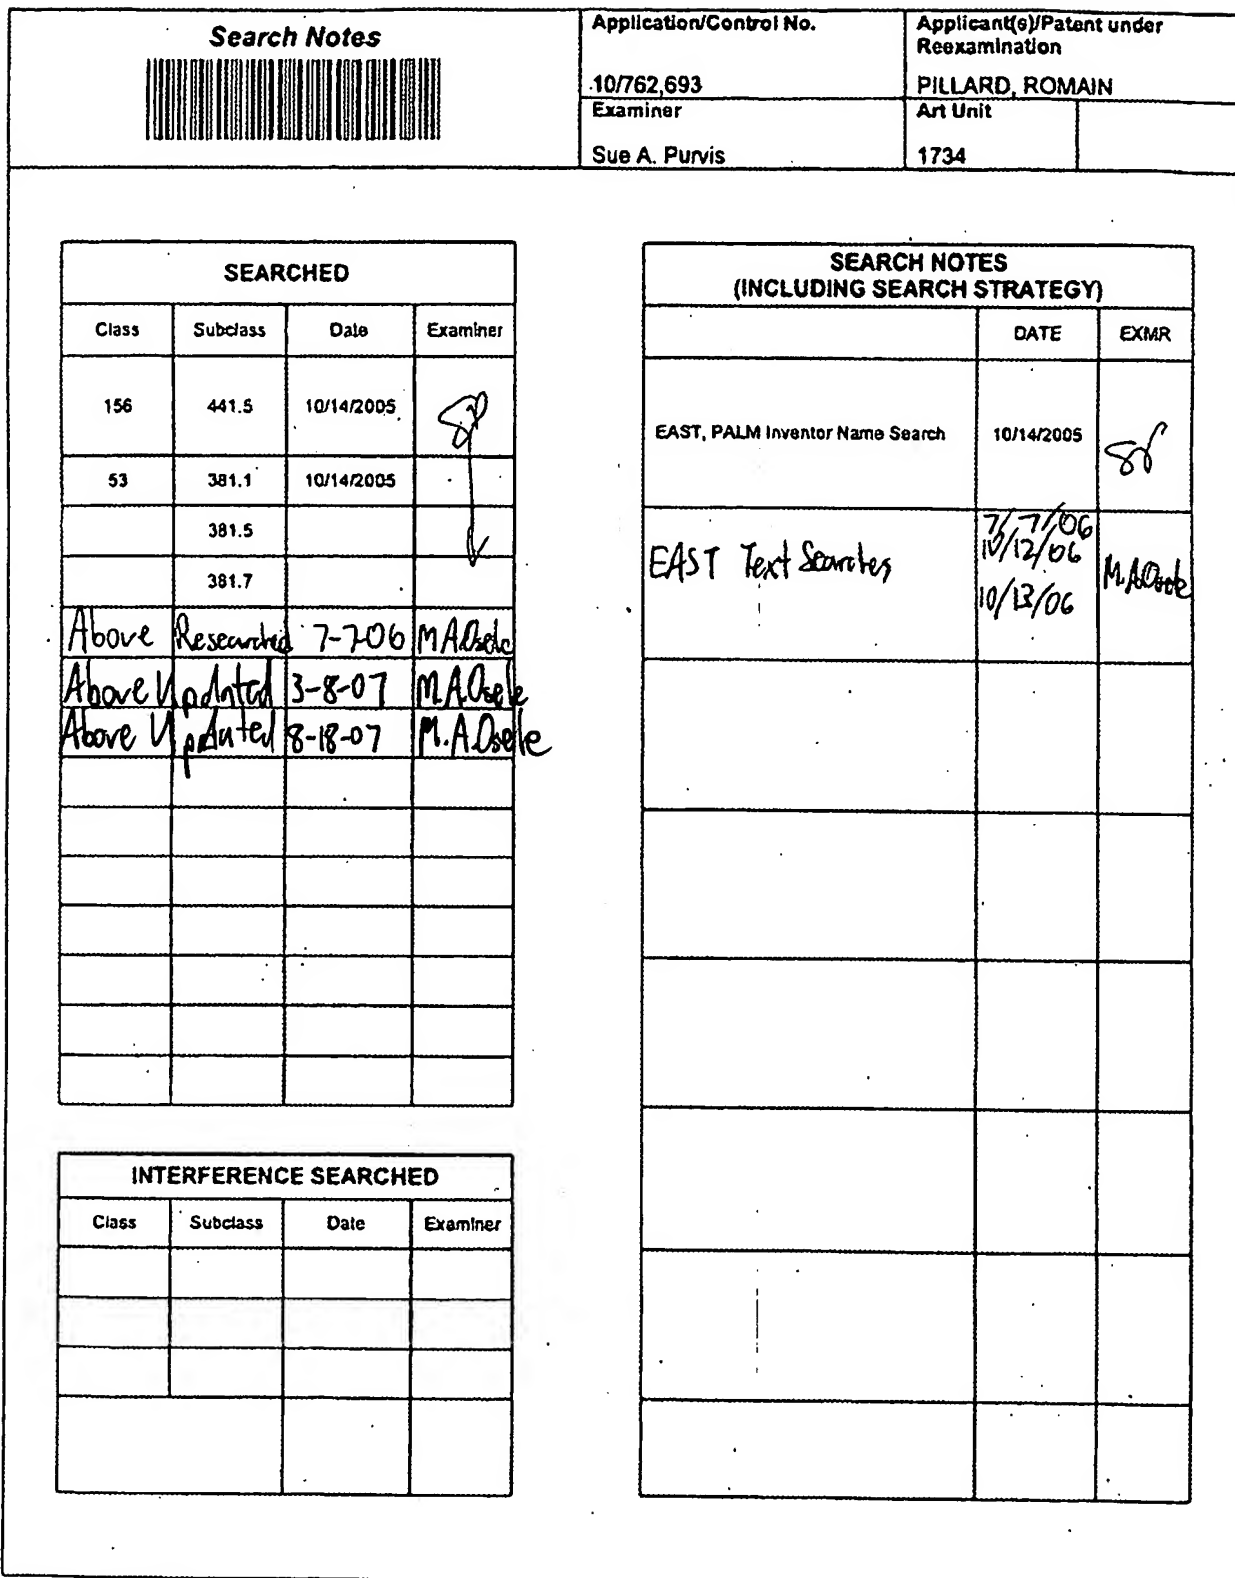 Search Notes
Application/Control No.
10/762,693
Applicant(s)/Patent under
Reexamination
PILLARD, ROMAIN
Examiner
Sue A. Purvis
Art Unit
1734
SEARCHED
Class Subclass Date Examiner
156 441.5 10/14/2005 SP
53 381.1 10/14/2005
381.5
381.7
Above Researched 7-7-06 M.A.Osele
Above Updated 3-8-07 M.A.Osele
Above Updated 8-18-07 M.A.Osele
INTERFERENCE SEARCHED
Class Subclass Date Examiner
SEARCH NOTES
(INCLUDING SEARCH STRATEGY)
DATE EXMR
EAST, PALM Inventor Name Search 10/14/2005 SP
7/7/06
10/12/06
EAST Text Searches M.A.Osele
10/13/06